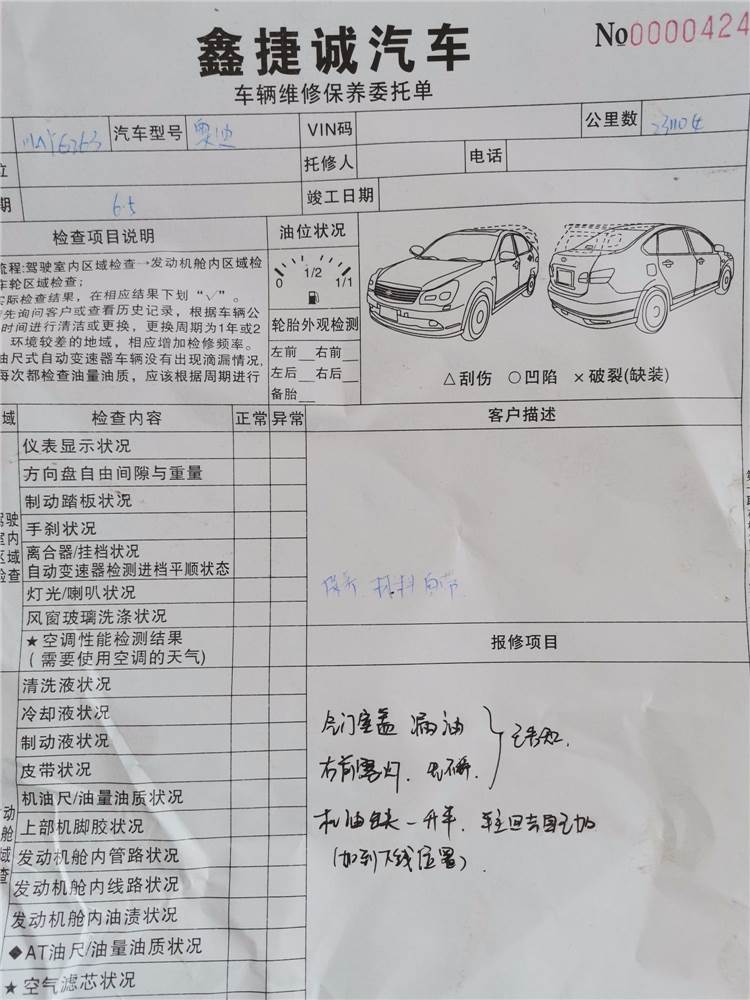 鑫捷诚汽车
No0000424
车辆维修保养委托单
汽车型号 奥迪 VIN码 公里数
托修人 电话
期 6.5 竣工日期
检查项目说明 油位状况
流程:驾驶室内区域检查→发动机舱内区域检
车轮区域检查;
实际检查结果，在相应结果下划“√”。
先询问客户或查看历史记录，根据车辆公
时间进行清洁或更换，更换周期为1年或2
环境较差的地域，相应增加检修频率。
油尺式自动变速器车辆没有出现滴漏情况,
每次都检查油量油质，应该根据周期进行
0 1/2 1/1
轮胎外观检测
左前__右前__
左后__右后__
备胎__
△刮伤 ○凹陷 ×破裂(缺装)
域 检查内容 正常 异常 客户描述
仪表显示状况
方向盘自由间隙与重量
制动踏板状况
驾驶室内区域检查
手刹状况
离合器/挂档状况
自动变速器检测进档平顺状态
灯光/喇叭状况
风窗玻璃洗涤状况
★空调性能检测结果
(需要使用空调的天气)
保养 材料自带
报修项目
清洗液状况
冷却液状况
制动液状况
皮带状况
机油尺/油量油质状况
上部机脚胶状况
发动机舱内管路状况
发动机舱内线路状况
发动机舱内油渍状况
◆AT油尺/油量油质状况
★空气滤芯状况
动舱域查
气门室盖 漏油
右前雾灯
已告知.
机油 一升半. 车主回去自己加
(加到下线位置)